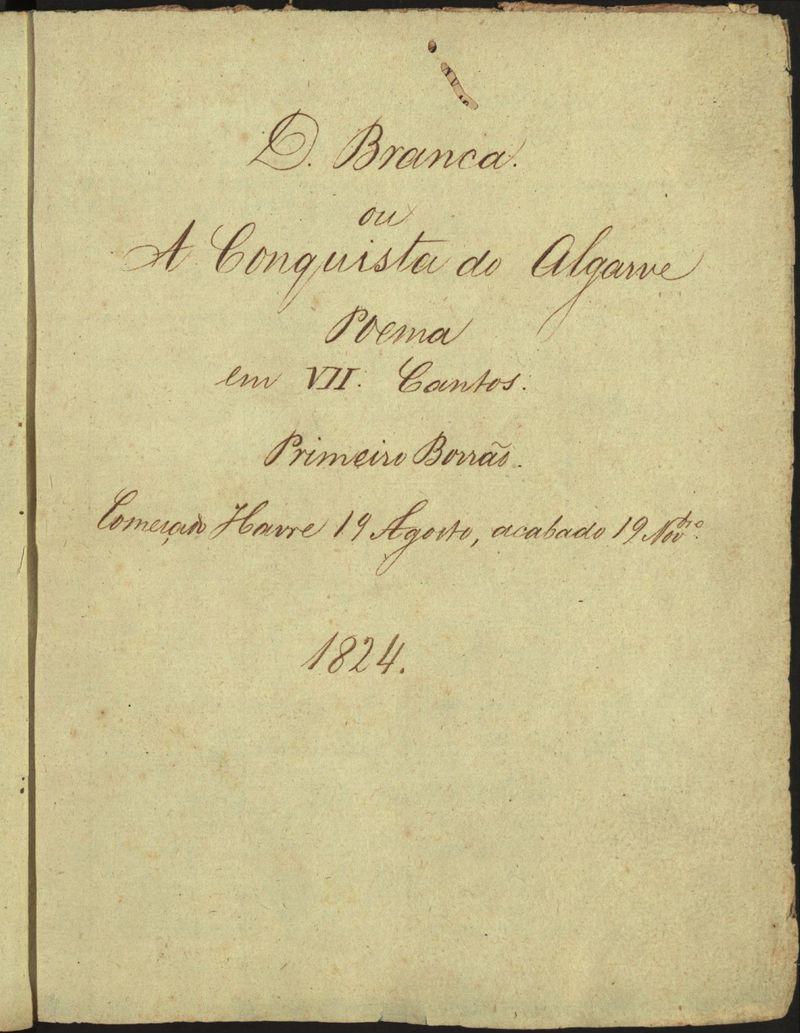 D. Branca.
ou
A Conquista do Algarve
Poema
em VII. Cantos.
Primeiro Borrão.
Começado Havre 19 Agosto, acabado 19 Novbro.
1824.